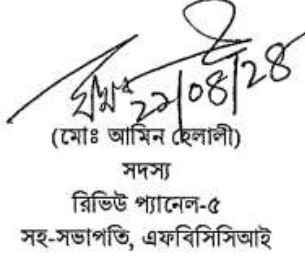 ২২/০৪/২৪
(মোঃ আমিন হেলালী)
সদস্য
রিভিউ প্যানেল-৫
সহ-সভাপতি, এফবিসিসিআই